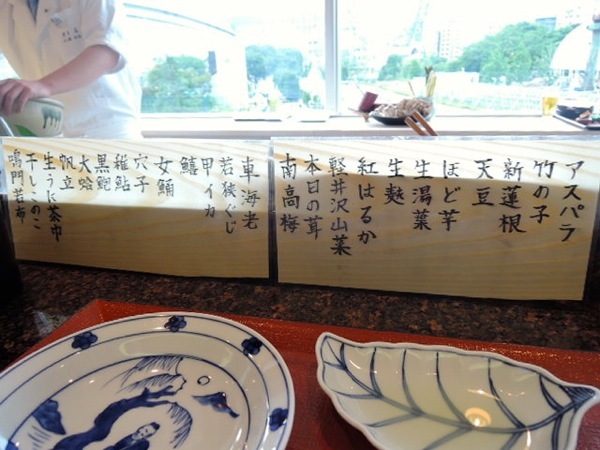 アスパラ
竹の子
新蓮根
天豆
ほど芋
生湯葉
生麩
紅はるか
軽井沢山菜
本日の茸
南高梅
車海老
若狭ぐじ
甲イカ
鱚
女鯒
穴子
稚鮎
黒鮑
大蛤
帆立
生うに茶巾
干しこのこ
鳴門若布